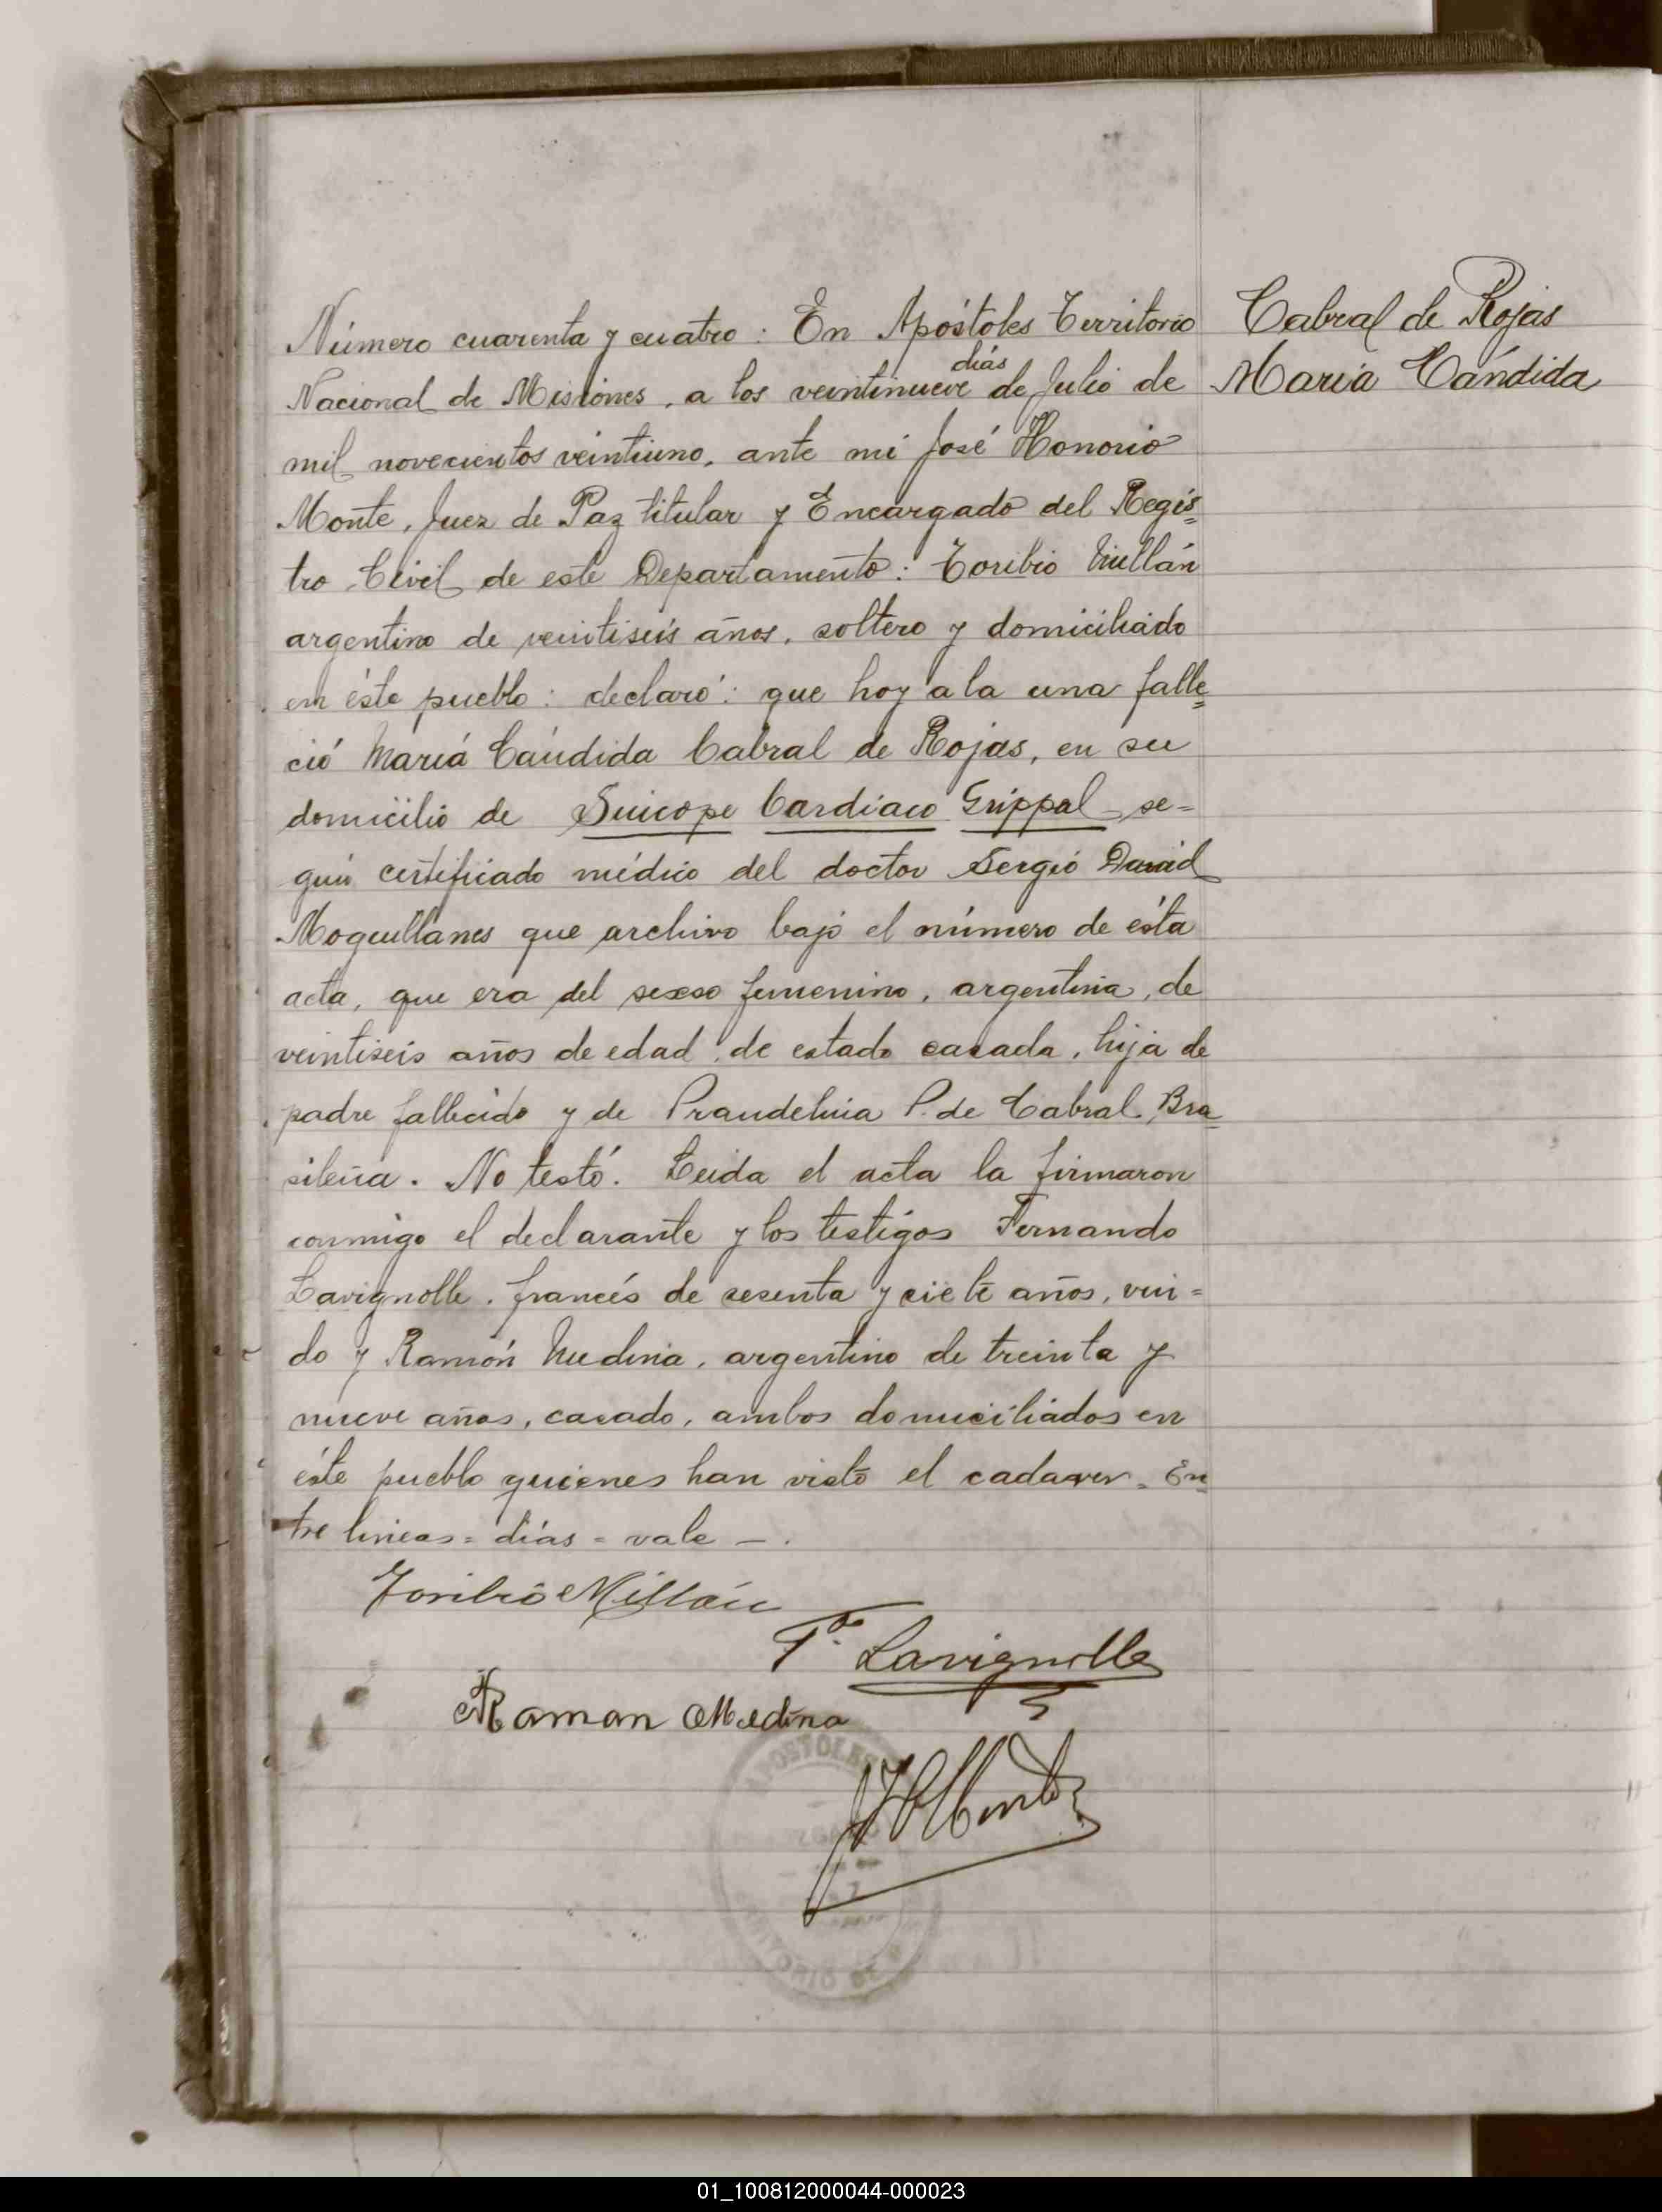 Cabral de Rojas
María Cándida
Número cuarenta y cuatro: En Apóstoles Territorio
días
Nacional de Misiones, a los veintinueve de Julio de
mil novecientos veintiuno, ante mi José Honorio
Monte, Juez de Paz titular y Encargado del Regis=
tro Civil de este Departamento: Toribio Millán
argentino de veintiseis años, soltero y domiciliado
en éste pueblo: declaró: que hoy a la una falle=
ció María Cándida Cabral de Rojas, en su
domicilio de Síncope Cardíaco Grippal se=
gún certificado médico del doctor Sergio David
que archivo bajo el número de ésta
acta, que era del sexso femenino, argentina, de
veintiseis años de edad, de estado casada, hija de
padre fallecido y de P. de Cabral, Bra
sileña. No testó. Leida el acta la firmaron
conmigo el declarante y los testigos Fernando
Lavignolle, francés de sesenta y siete años, viu=
do y Ramón Medina, argentino de treinta y
nueve años, casado, ambos domiciliados en
éste pueblo quienes han visto el cadaver. En
tre lineas = días = vale -.
Toribio Millán
F. Lavignolle
Raman Medina
JHMonte
APOSTOLES
01_100812000044-000023